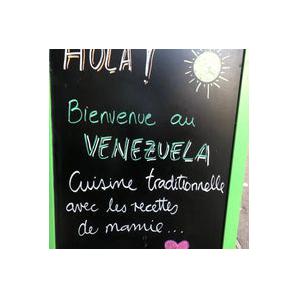 HOLA !
Bienvenue au
VENEZUELA
Cuisine traditionnelle
avec les recettes
de mamie...